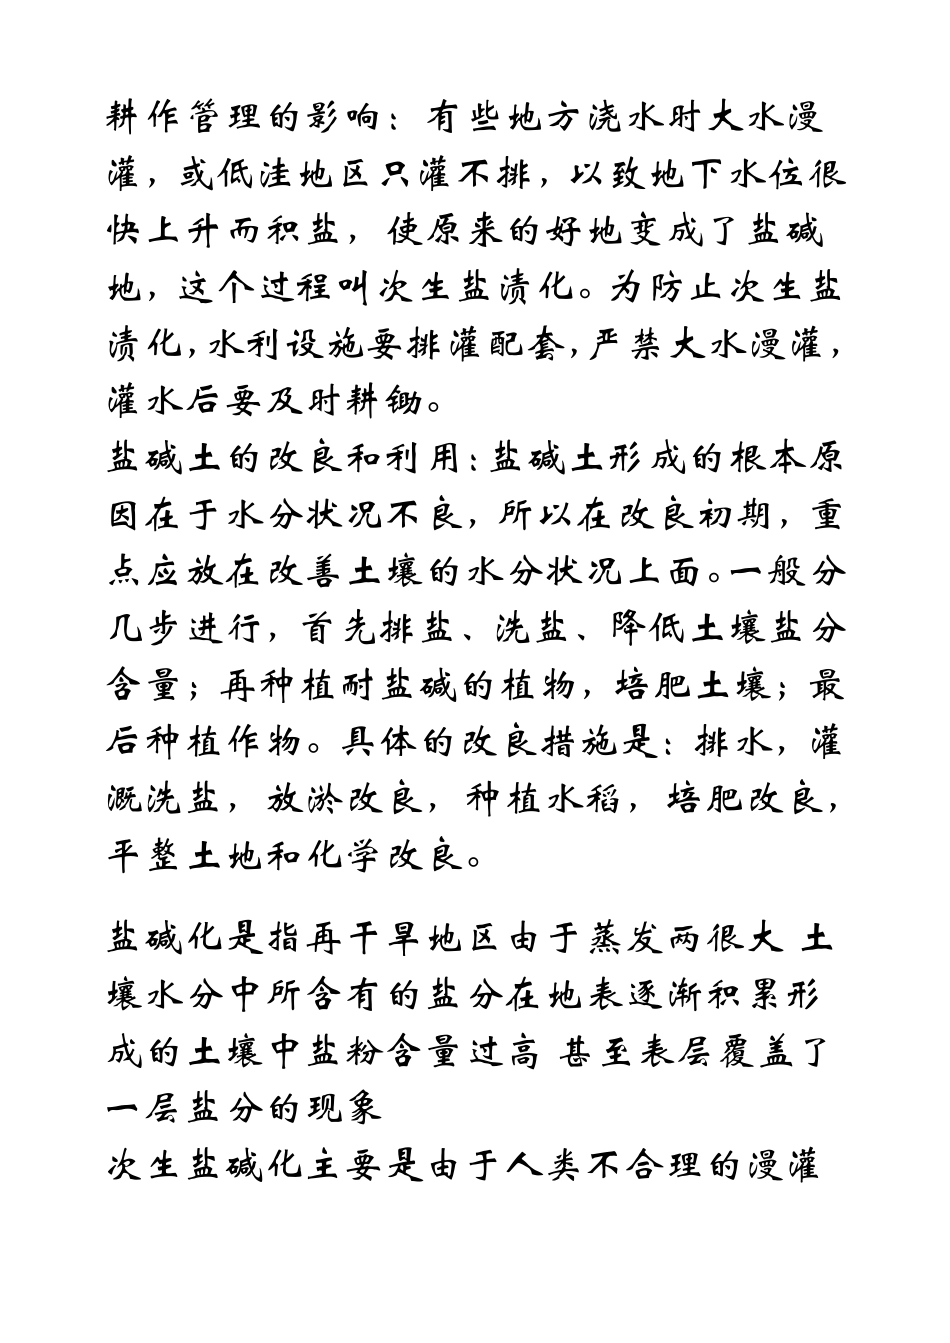 耕作管理的影响：有些地方浇水时大水漫
灌，或低洼地区只灌不排，以致地下水位很
快上升而积盐，使原来的好地变成了盐碱
地，这个过程叫次生盐渍化。为防止次生盐
渍化，水利设施要排灌配套，严禁大水漫灌，
灌水后要及时耕锄。
盐碱土的改良和利用：盐碱土形成的根本原
因在于水分状况不良，所以在改良初期，重
点应放在改善土壤的水分状况上面。一般分
几步进行，首先排盐、洗盐、降低土壤盐分
含量；再种植耐盐碱的植物，培肥土壤；最
后种植作物。具体的改良措施是：排水，灌
溉洗盐，放淤改良，种植水稻，培肥改良，
平整土地和化学改良。
盐碱化是指再干旱地区由于蒸发两很大 土
壤水分中所含有的盐分在地表逐渐积累形
成的土壤中盐粉含量过高 甚至表层覆盖了
一层盐分的现象
次生盐碱化主要是由于人类不合理的漫灌